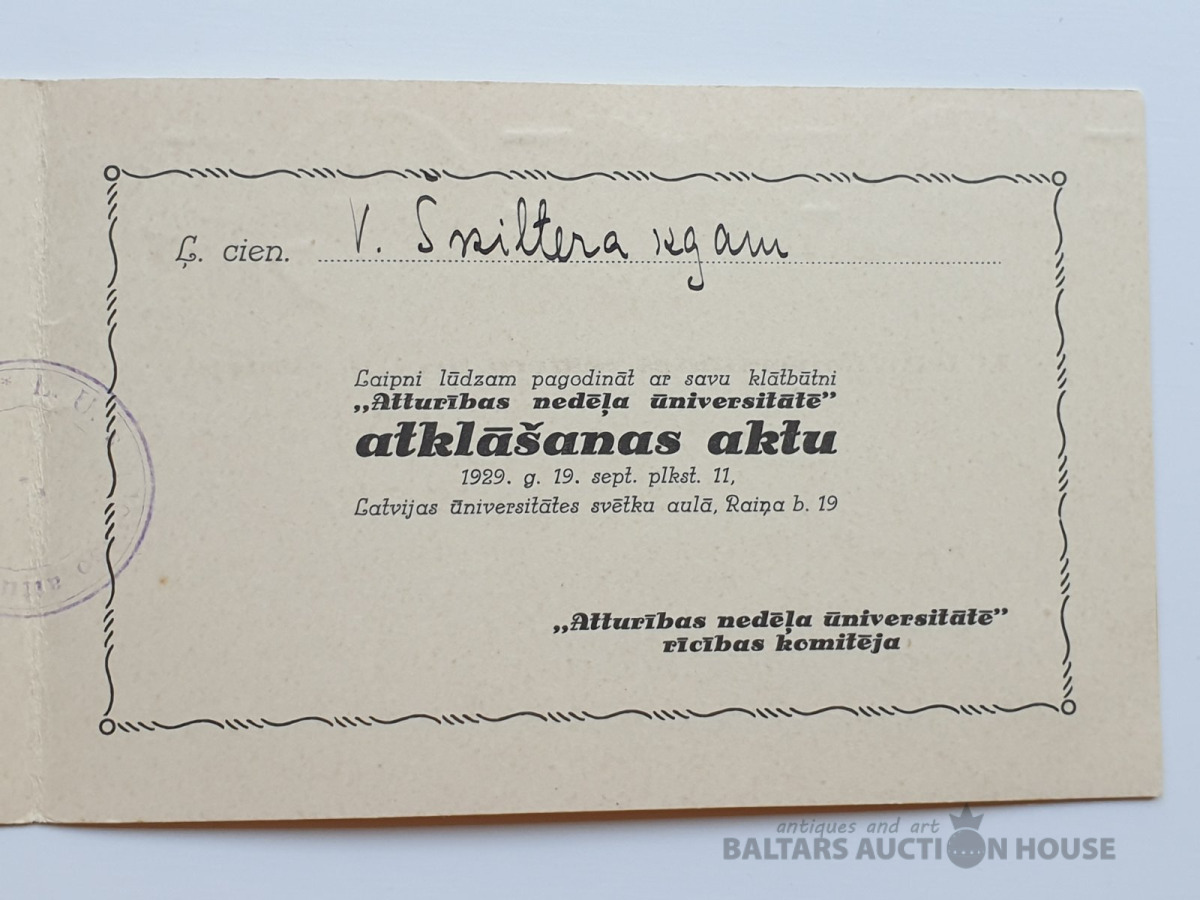 Ļ. cien. V. Spiltera kgam
Laipni lūdzam pagodināt ar savu klātbūtni
„Atturības nedēļa ūniversitātē”
atklāšanas aktu
1929. g. 19. sept. plkst. 11,
Latvijas ūniversitātes svētku aulā, Raiņa b. 19
„Atturības nedēļa ūniversitātē”
rīcības komitēja
L. U.
antiques and art
BALTARS AUCTION HOUSE